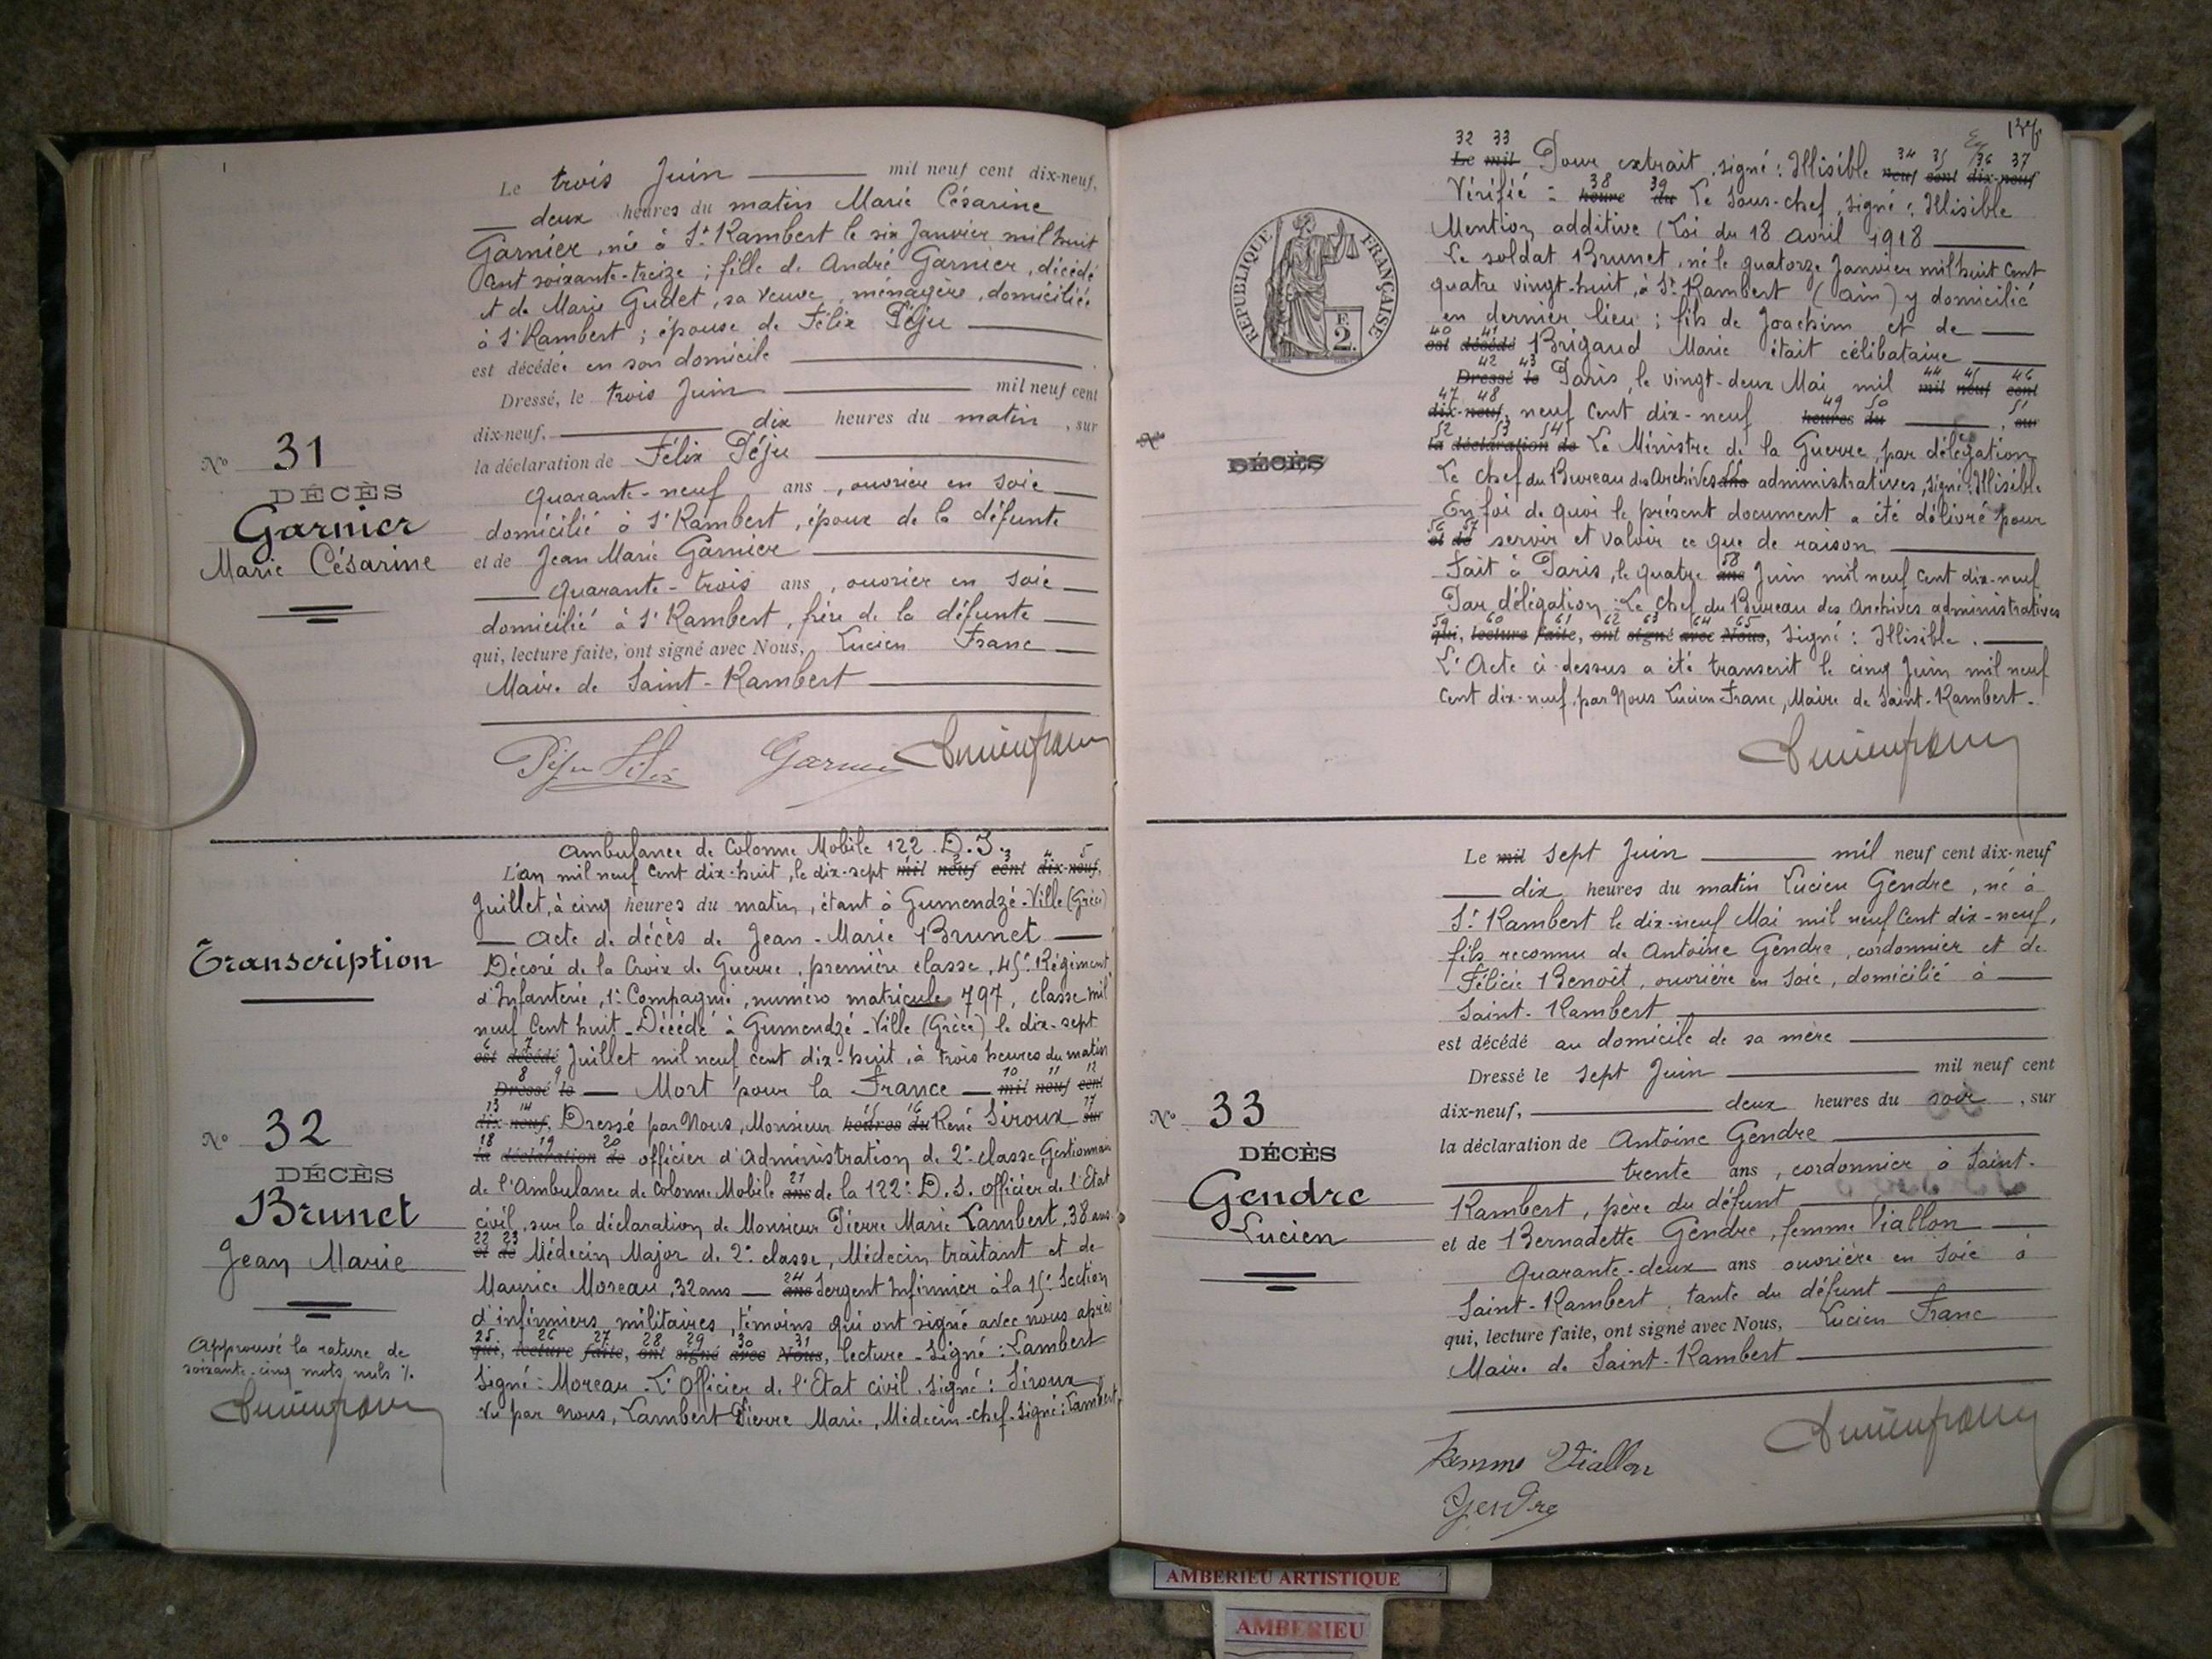 Le trois Juin mil neuf cent dix-neuf,
deux heures du matin Marie Césarine
Garnier, née à St Rambert le six Janvier mil huit
cent soixante-treize ; fille de André Garnier, décédé
et de Marie Gudet, sa veuve, ménagère, domiciliée
à St Rambert ; épouse de Félix Péju
est décédée en son domicile
Dressé, le trois Juin mil neuf cent
dix-neuf, dix heures du matin, sur
la déclaration de Félix Péju
Quarante-neuf ans, ouvrier en soie
domicilié à St Rambert, époux de la défunte
et de Jean Marie Garnier
Quarante-trois ans, ouvrier en soie
domicilié à St Rambert, frère de la défunte
qui, lecture faite, ont signé avec Nous, Lucien Franc
Maire de Saint-Rambert
No 31
DÉCÈS
Garnier
Marie Césarine
Péju Félix Garnier Lucien Franc
Transcription
No 32
DÉCÈS
Brunet
Jean Marie
Approuvé la rature de
soixante-cinq mots nuls %
Lucien Franc
Ambulance de Colonne Mobile 122 D.I.
L'an mil neuf cent dix-huit, le dix-sept mil neuf cent dix-neuf, 3 4 5
Juillet, à cinq heures du matin, étant à Gumendzé-Ville (Grèce)
Acte de décès de Jean-Marie Brunet
Décoré de la Croix de Guerre, première classe, 45e Régiment
d'Infanterie, 1e Compagnie, numéro matricule 797, classe mil
neuf cent huit - Décédé à Gumendzé-Ville (Grèce) le dix-sept
6 7 est décédé Juillet mil neuf cent dix-huit, à trois heures du matin
8 9 Dressé le Mort pour la France 10 11 12 mil neuf cent
13 14 dix-neuf, Dressé par Nous, Monsieur 15 16 heures du René Siroux 17 sur
18 19 20 la déclaration de officier d'Administration de 2e classe, Gestionnaire
de l'Ambulance de Colonne Mobile 21 ans de la 122e D.I. officier de l'Etat
civil, sur la déclaration de Monsieur Pierre Marie Lambert, 38 ans
22 23 et de Médecin Major de 2e classe, Médecin traitant et de
Maurice Moreau, 32 ans 24 ans Sergent Infirmier à la 15e Section
d'infirmiers militaires, témoins qui ont signé avec nous après
25 26 27 28 29 30 31 qui, lecture faite, ont signé avec Nous, lecture - Signé : Lambert
Signé : Moreau - L'Officier de l'Etat civil, Signé : Siroux
Vu par nous, Lambert Pierre Marie, Médecin-chef - Signé : Lambert
32 33 Le mil Pour extrait, signé : Illisible 34 35 36 37 neuf cent dix-neuf
Vérifié : 38 39 heure du Le Sous-chef, signé : Illisible
Mention additive (Loi du 18 avril 1918
Le soldat Brunet, né le quatorze Janvier mil huit cent
quatre vingt-huit, à St Rambert (Ain) y domicilié
en dernier lieu ; fils de Joachim et de
40 41 est décédé Brigaud Marie était célibataire
42 43 Dressé le Paris, le vingt-deux Mai mil 44 45 46 mil neuf cent
47 48 dix-neuf, neuf cent dix-neuf 49 50 heures du , 51 sur
52 53 54 la déclaration de Le Ministre de la Guerre, par délégation
Le Chef du Bureau des Archives ans administratives, signé : Illisible
En foi de quoi le présent document a été délivré pour
56 57 et de servir et valoir ce que de raison
Fait à Paris, le quatre 58 ans Juin mil neuf cent dix-neuf
Par délégation : Le Chef du Bureau des Archives administratives
59 60 61 62 63 64 65 qui, lecture faite, ont signé avec Nous, Signé : Illisible.
L'Acte ci-dessus a été transcrit le cinq Juin mil neuf
cent dix-neuf, par Nous Lucien Franc, Maire de Saint-Rambert.
Lucien Franc
RÉPUBLIQUE FRANÇAISE
F. 2.
No
DÉCÈS
Le mil sept Juin mil neuf cent dix-neuf
dix heures du matin Lucien Gendre, né à
St Rambert le dix-neuf Mai mil neuf cent dix-neuf,
fils reconnu de Antoine Gendre, cordonnier et de
Félicie Benoît, ouvrière en soie, domicilié à
Saint-Rambert
est décédé au domicile de sa mère
Dressé le sept Juin mil neuf cent
dix-neuf, deux heures du soir, sur
la déclaration de Antoine Gendre
trente ans, cordonnier à Saint-
Rambert, père du défunt
et de Bernadette Gendre, femme Viallon
Quarante-deux ans ouvrière en soie à
Saint-Rambert, tante du défunt
qui, lecture faite, ont signé avec Nous, Lucien Franc
Maire de Saint-Rambert
No 33
DÉCÈS
Gendre
Lucien
Femme Viallon
Gendre
Lucien Franc
AMBERIEU ARTISTIQUE
AMBERIEU